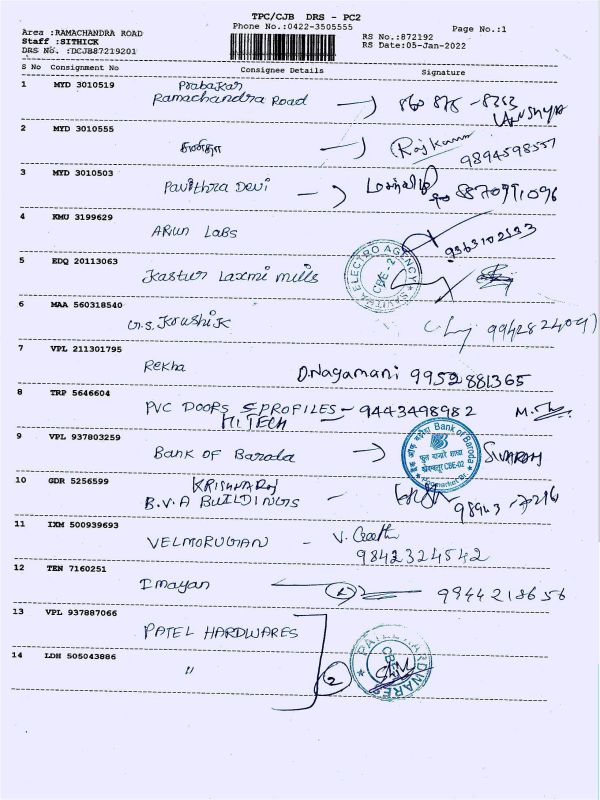 TPC/CJB DRS - PC2
Phone No.:0422-3505555
Page No.:1
Area :RAMACHANDRA ROAD
Staff :SITHICK
DRS No. :DCJB87219201
RS No.:872192
RS Date:05-Jan-2022
S No Consignment No Consignee Details Signature
1 MYD 3010519 Prabakar
Ramachandra Road
2 MYD 3010555 Raj Kumar
3 MYD 3010503 Pavithra Devi
4 KMU 3199629 Arun Labs 9363102533
5 EDQ 20113063 Kastur Laxmi Mills
ELECTRO AGENCY
CBE-2
6 MAA 560318540 G.S. Koushik
7 VPL 211301795 Rekha D.Nagamani 9952881365
8 TRP 5646604 PVC DOORS & PROFILES - 9443498982
HITECH
9 VPL 937803259 Bank of Baroda
Bank of Baroda
10 GDR 5256599 KRISHNARAJ
B.V.A BUILDINGS -
11 IXM 500939693 VELMORUGAN -
9842324542
12 TEN 7160251 Imayan 9944218656
13 VPL 937887066 PATEL HARDWARES
14 LDH 505043886 "
2
PATEL HARDWARES
CBE